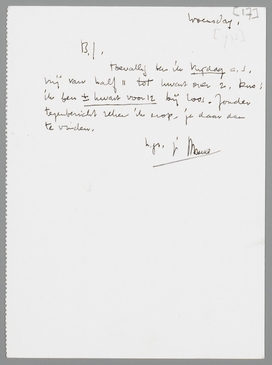 woensdag. [17]
B.J.
toevallig ben ik vrijdag a.s.
vrij van half 11 tot kwart over 2. dus:
ik ben ± kwart voor 12 bij Loos. Zonder
tegenbericht reken ik erop je daar dan
te vinden.
h.gr. j